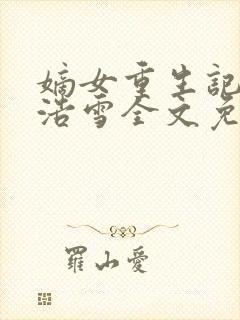 嫡女重生記
浩雪全文免
羅山愛